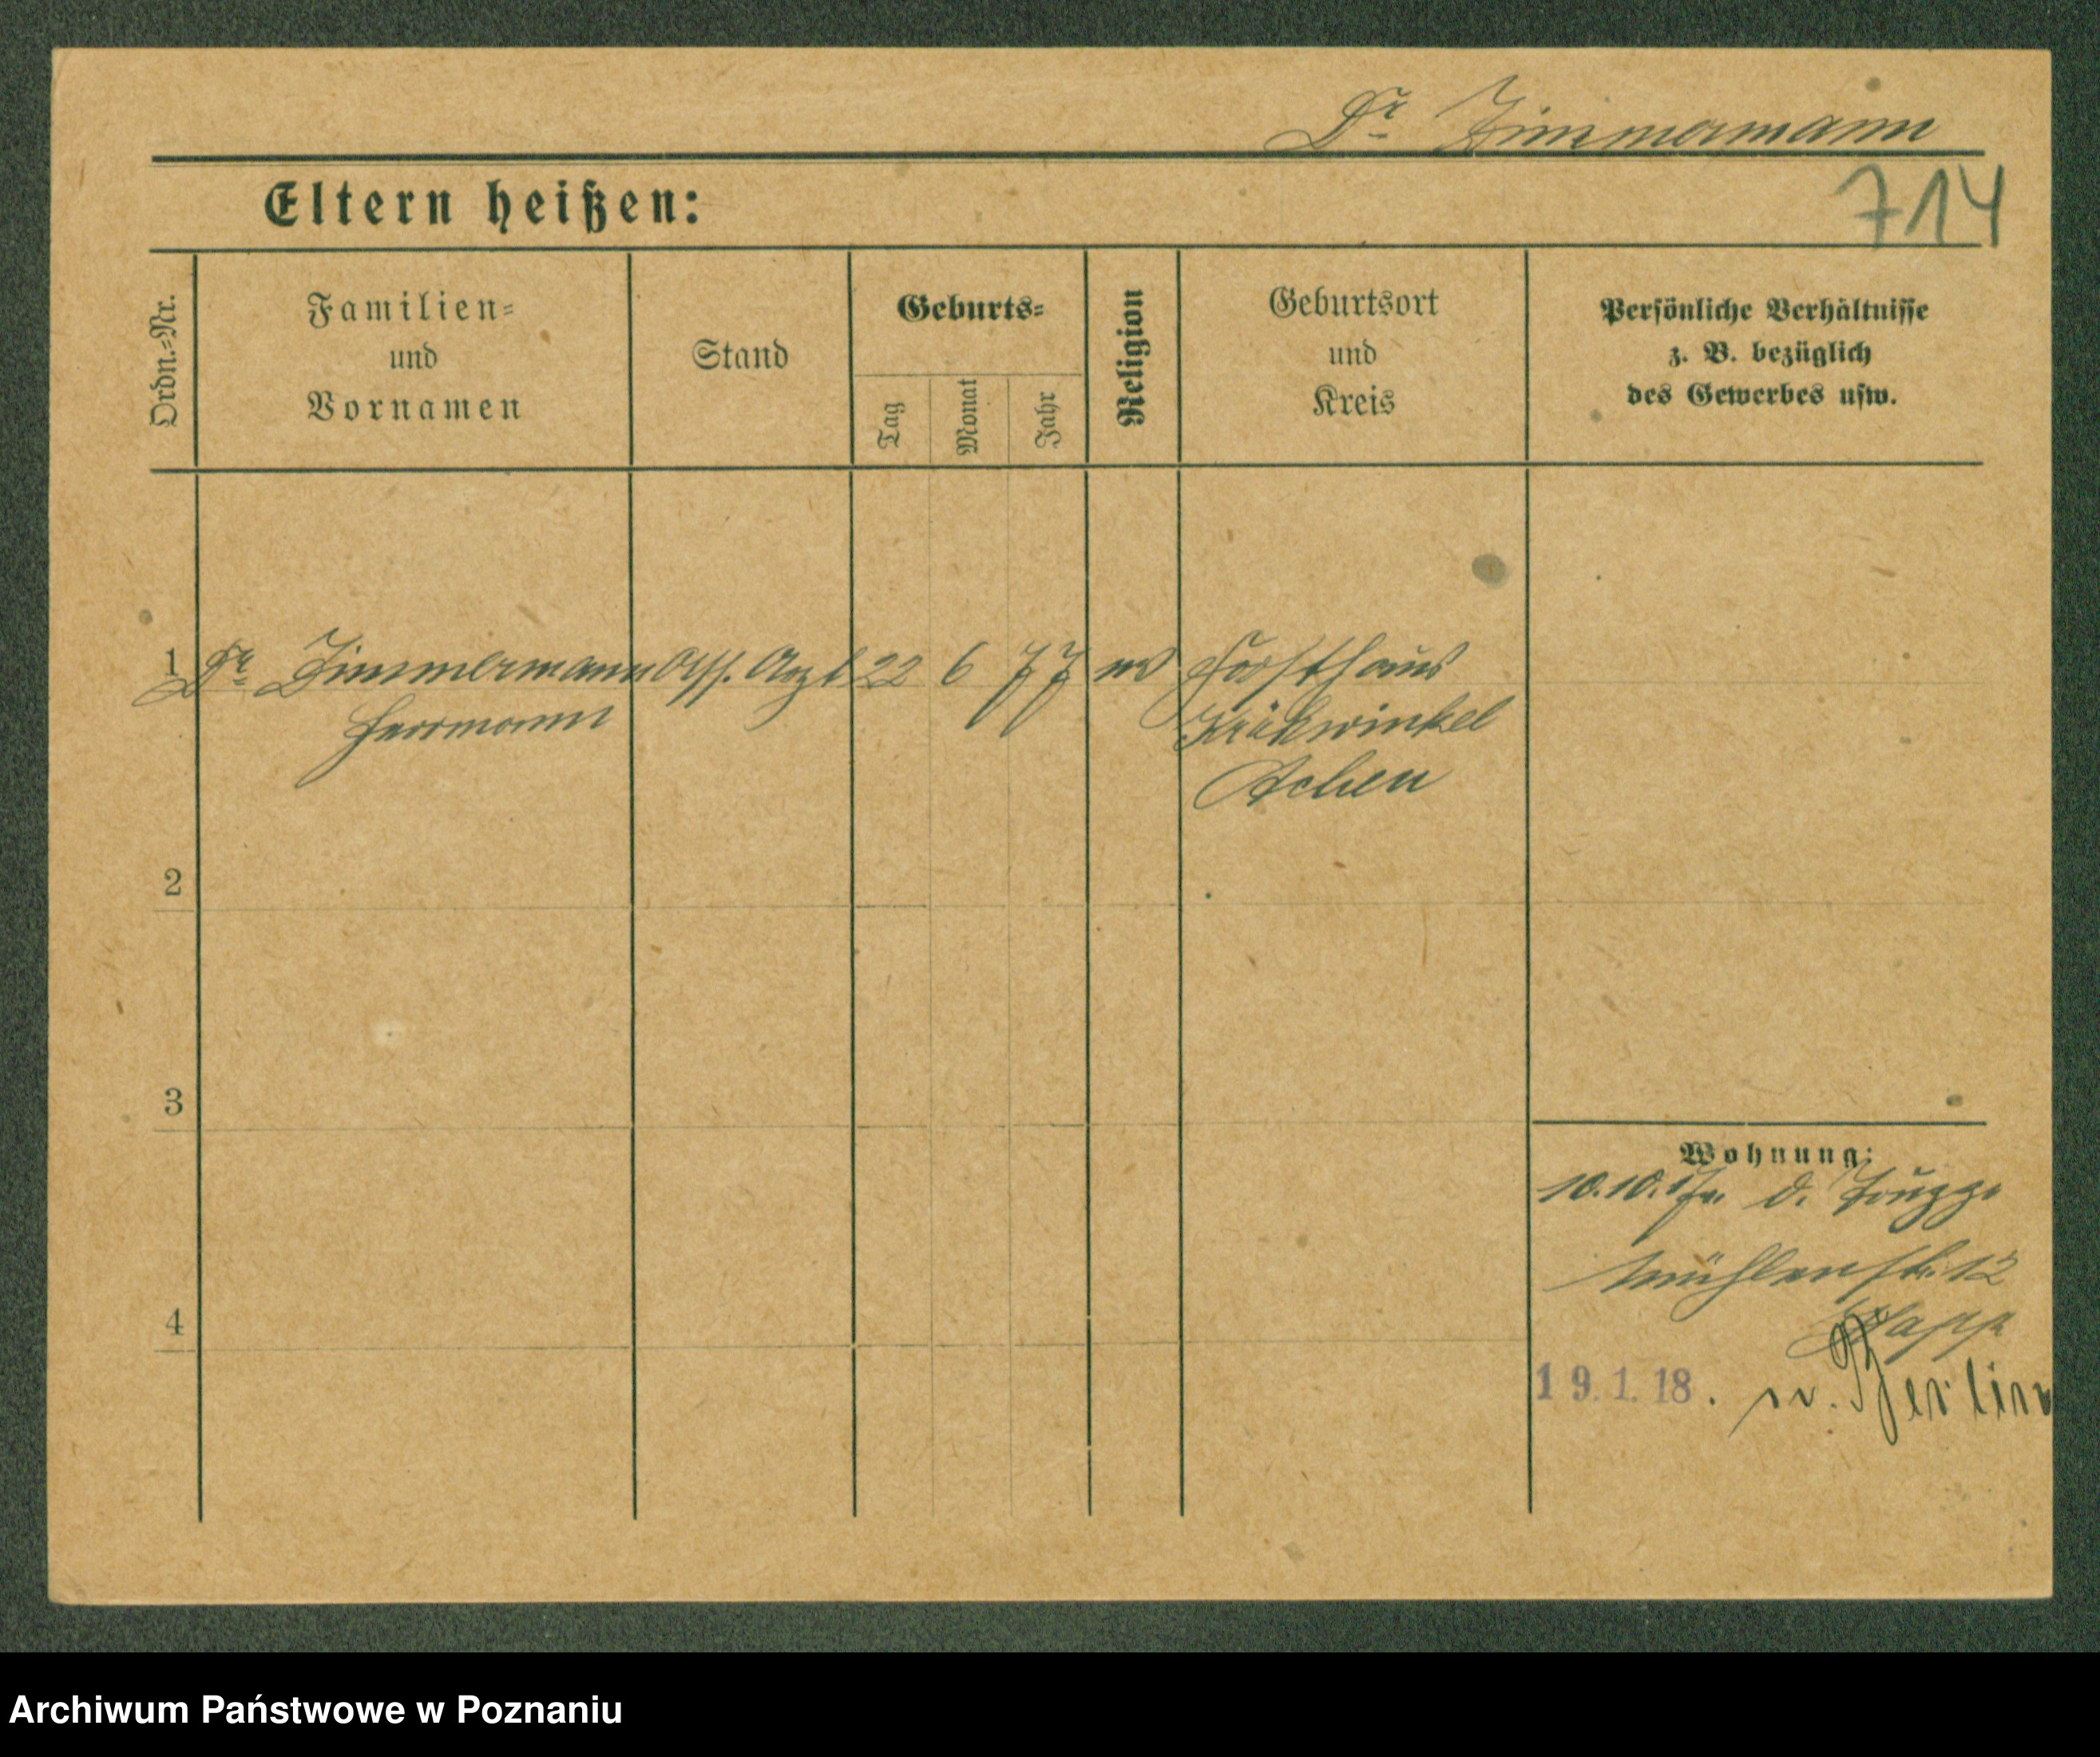 Dr Zimmermann
Eltern heißen:
714
Ordn.-Nr.
Familien-
und
Vornamen
Stand
Geburts-
Tag
Monat
Jahr
Religion
Geburtsort
und
Kreis
Persönliche Verhältnisse
z. B. bezüglich
des Gewerbes usw.
1 Dr Zimmermann Ass. Arzt 22 6 77 ev Forsthaus
Herrmann Krähwinkel
Achen
2
3
4
Wohnung:
10.10.17 v. d.
Mühlenstr. 12
19.1.18. n. Berlin
Archiwum Państwowe w Poznaniu